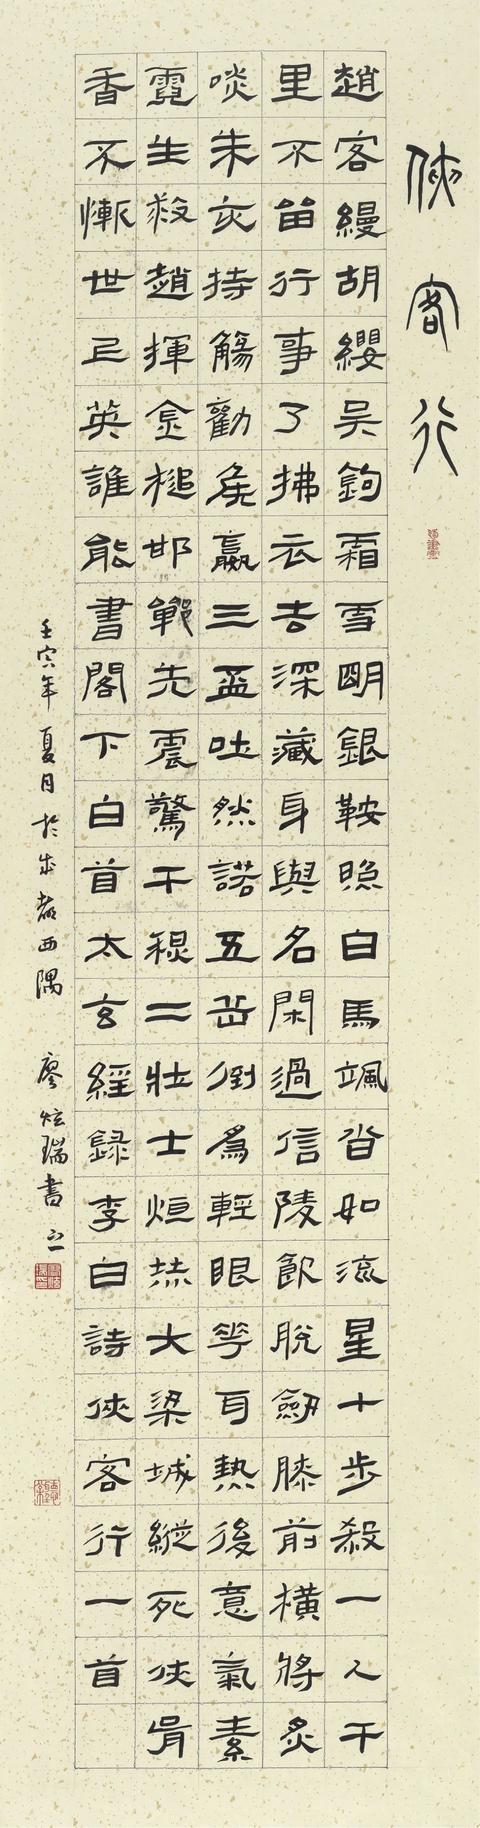 俠客行
趙客縵胡纓吳鉤霜雪明銀鞍照白馬颯沓如流星十步殺一人千
里不留行事了拂云去深藏身與名閑過信陵飲脫劒膝前橫將炙
啖朱亥持觴勸侯嬴三盃吐然諾五岳倒為輕眼花耳熱後意氣素
霓生救趙揮金槌邯鄲先震驚千秋二壯士烜赫大梁城縱死俠骨
香不慚世上英誰能書閣下白首太玄經錄李白詩俠客行一首
壬寅年夏月於成都西隅 廖炫瑞書